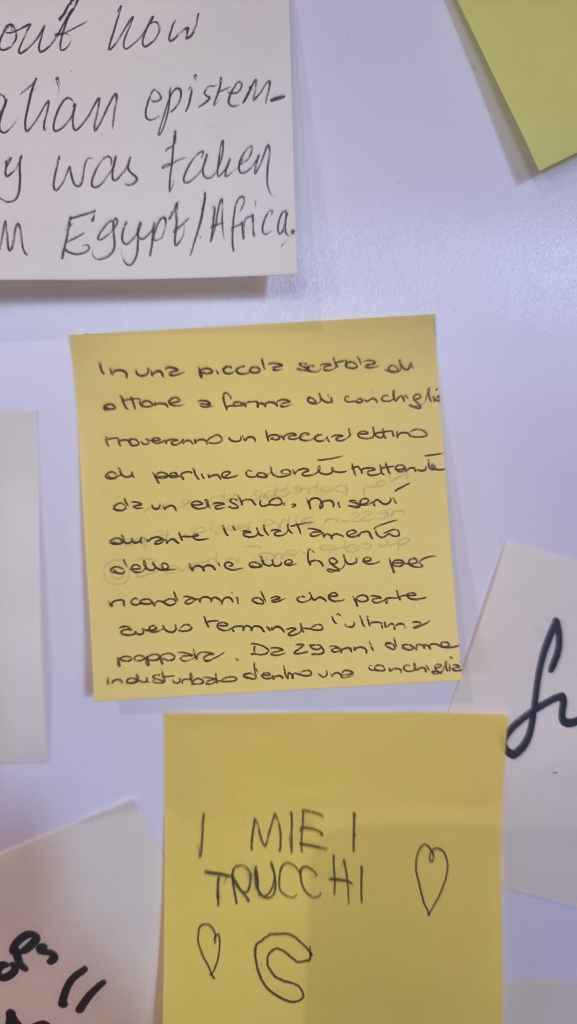 out how
alian epistem-
y was taken
m Egypt/Africa.
In una piccola scatola di
ottone a forma di conchiglia
troveranno un braccialettino
di perline colorate trattenute
da un elastico. Mi servì
durante l'allattamento
delle mie due figlie per
ricordarmi da che parte
avevo terminato l'ultima
poppata. Da 29 anni dorme
indisturbato dentro una conchiglia
I MIEI
TRUCCHI